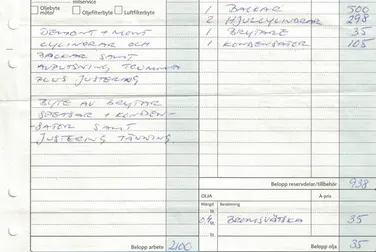 milservice
Oljebyte motor
Oljefilterbyte
Luftfilterbyte
DEMONT + MONT
CYLINDRAR OCH
BACKAR SAMT
AVPUTSNING TRUMMA
PLUS JUSTERING
BYTE AV BRYTAR
SPETSAR + KONDEN-
SATOR SAMT
JUSTERING TÄNNING.
Belopp arbete 2100
1 BACKAR 500
2 HJULCYLINDRAR 298
1 BRYTARE 35
1 KONDENSATOR 105
Belopp reservdelar/tillbehör 938
OLJA
À-pris
Mängd lit Benämning
BROMSVÄTSKA 35
lit
Belopp olja 35